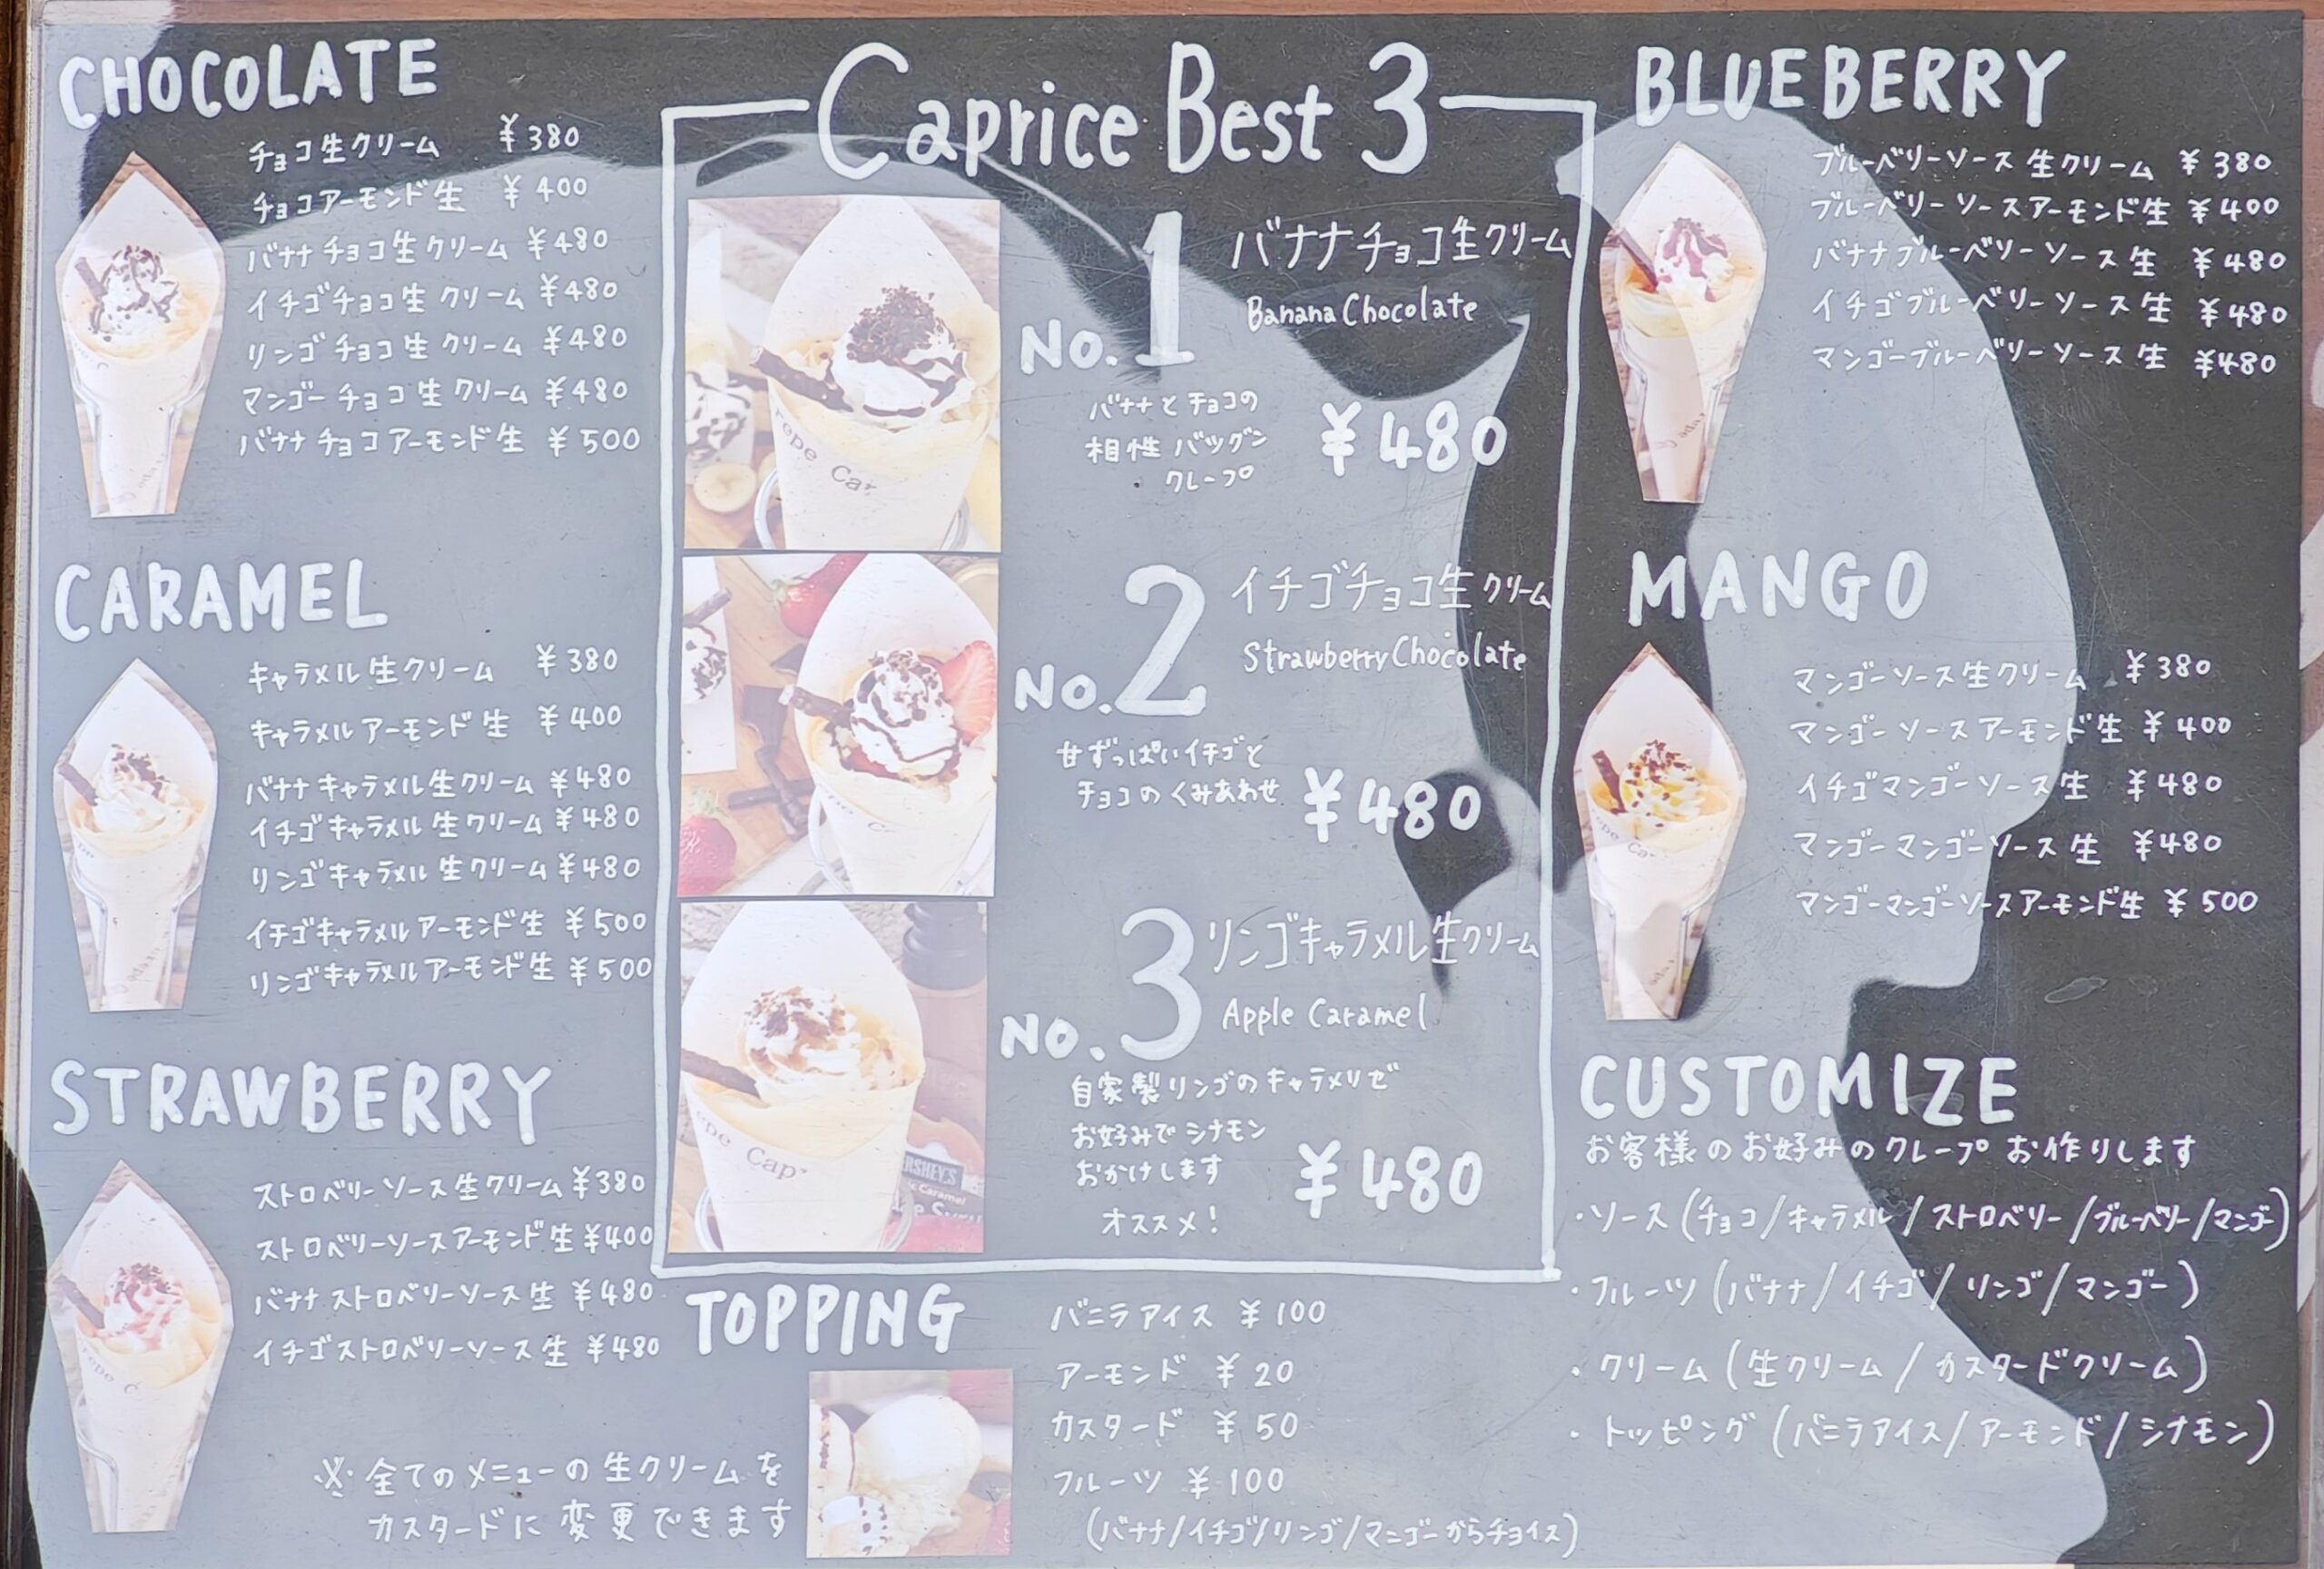 CHOCOLATE
チョコ生クリーム ¥380
チョコアーモンド生 ¥400
バナナチョコ生クリーム ¥480
イチゴチョコ生クリーム ¥480
リンゴチョコ生クリーム ¥480
マンゴーチョコ生クリーム ¥480
バナナチョコアーモンド生 ¥500
CARAMEL
キャラメル生クリーム ¥380
キャラメルアーモンド生 ¥400
バナナキャラメル生クリーム ¥480
イチゴキャラメル生クリーム ¥480
リンゴキャラメル生クリーム ¥480
イチゴキャラメルアーモンド生 ¥500
リンゴキャラメルアーモンド生 ¥500
STRAWBERRY
ストロベリーソース生クリーム ¥380
ストロベリーソースアーモンド生 ¥400
バナナストロベリーソース生 ¥480
イチゴストロベリーソース生 ¥480
※全てのメニューの生クリームを
カスタードに変更できます
Caprice Best 3
No.1
バナナチョコ生クリーム
Banana Chocolate
バナナとチョコの
相性バツグン
クレープ
¥480
No.2
イチゴチョコ生クリーム
Strawberry Chocolate
甘ずっぱいイチゴと
チョコのくみあわせ
¥480
No.3
リンゴキャラメル生クリーム
Apple Caramel
自家製リンゴのキャラメリゼ
お好みでシナモン
おかけします
オススメ!
¥480
HERSHEY'S
Caramel
TOPPING
バニラアイス ¥100
アーモンド ¥20
カスタード ¥50
フルーツ ¥100
(バナナ/イチゴ/リンゴ/マンゴーからチョイス)
BLUEBERRY
ブルーベリーソース生クリーム ¥380
ブルーベリーソースアーモンド生 ¥400
バナナブルーベリーソース生 ¥480
イチゴブルーベリーソース生 ¥480
マンゴーブルーベリーソース生 ¥480
MANGO
マンゴーソース生クリーム ¥380
マンゴーソースアーモンド生 ¥400
イチゴマンゴーソース生 ¥480
マンゴーマンゴーソース生 ¥480
マンゴーマンゴーソースアーモンド生 ¥500
CUSTOMIZE
お客様のお好みのクレープお作りします
・ソース(チョコ/キャラメル/ストロベリー/ブルーベリー/マンゴー)
・フルーツ(バナナ/イチゴ/リンゴ/マンゴー)
・クリーム(生クリーム/カスタードクリーム)
・トッピング(バニラアイス/アーモンド/シナモン)